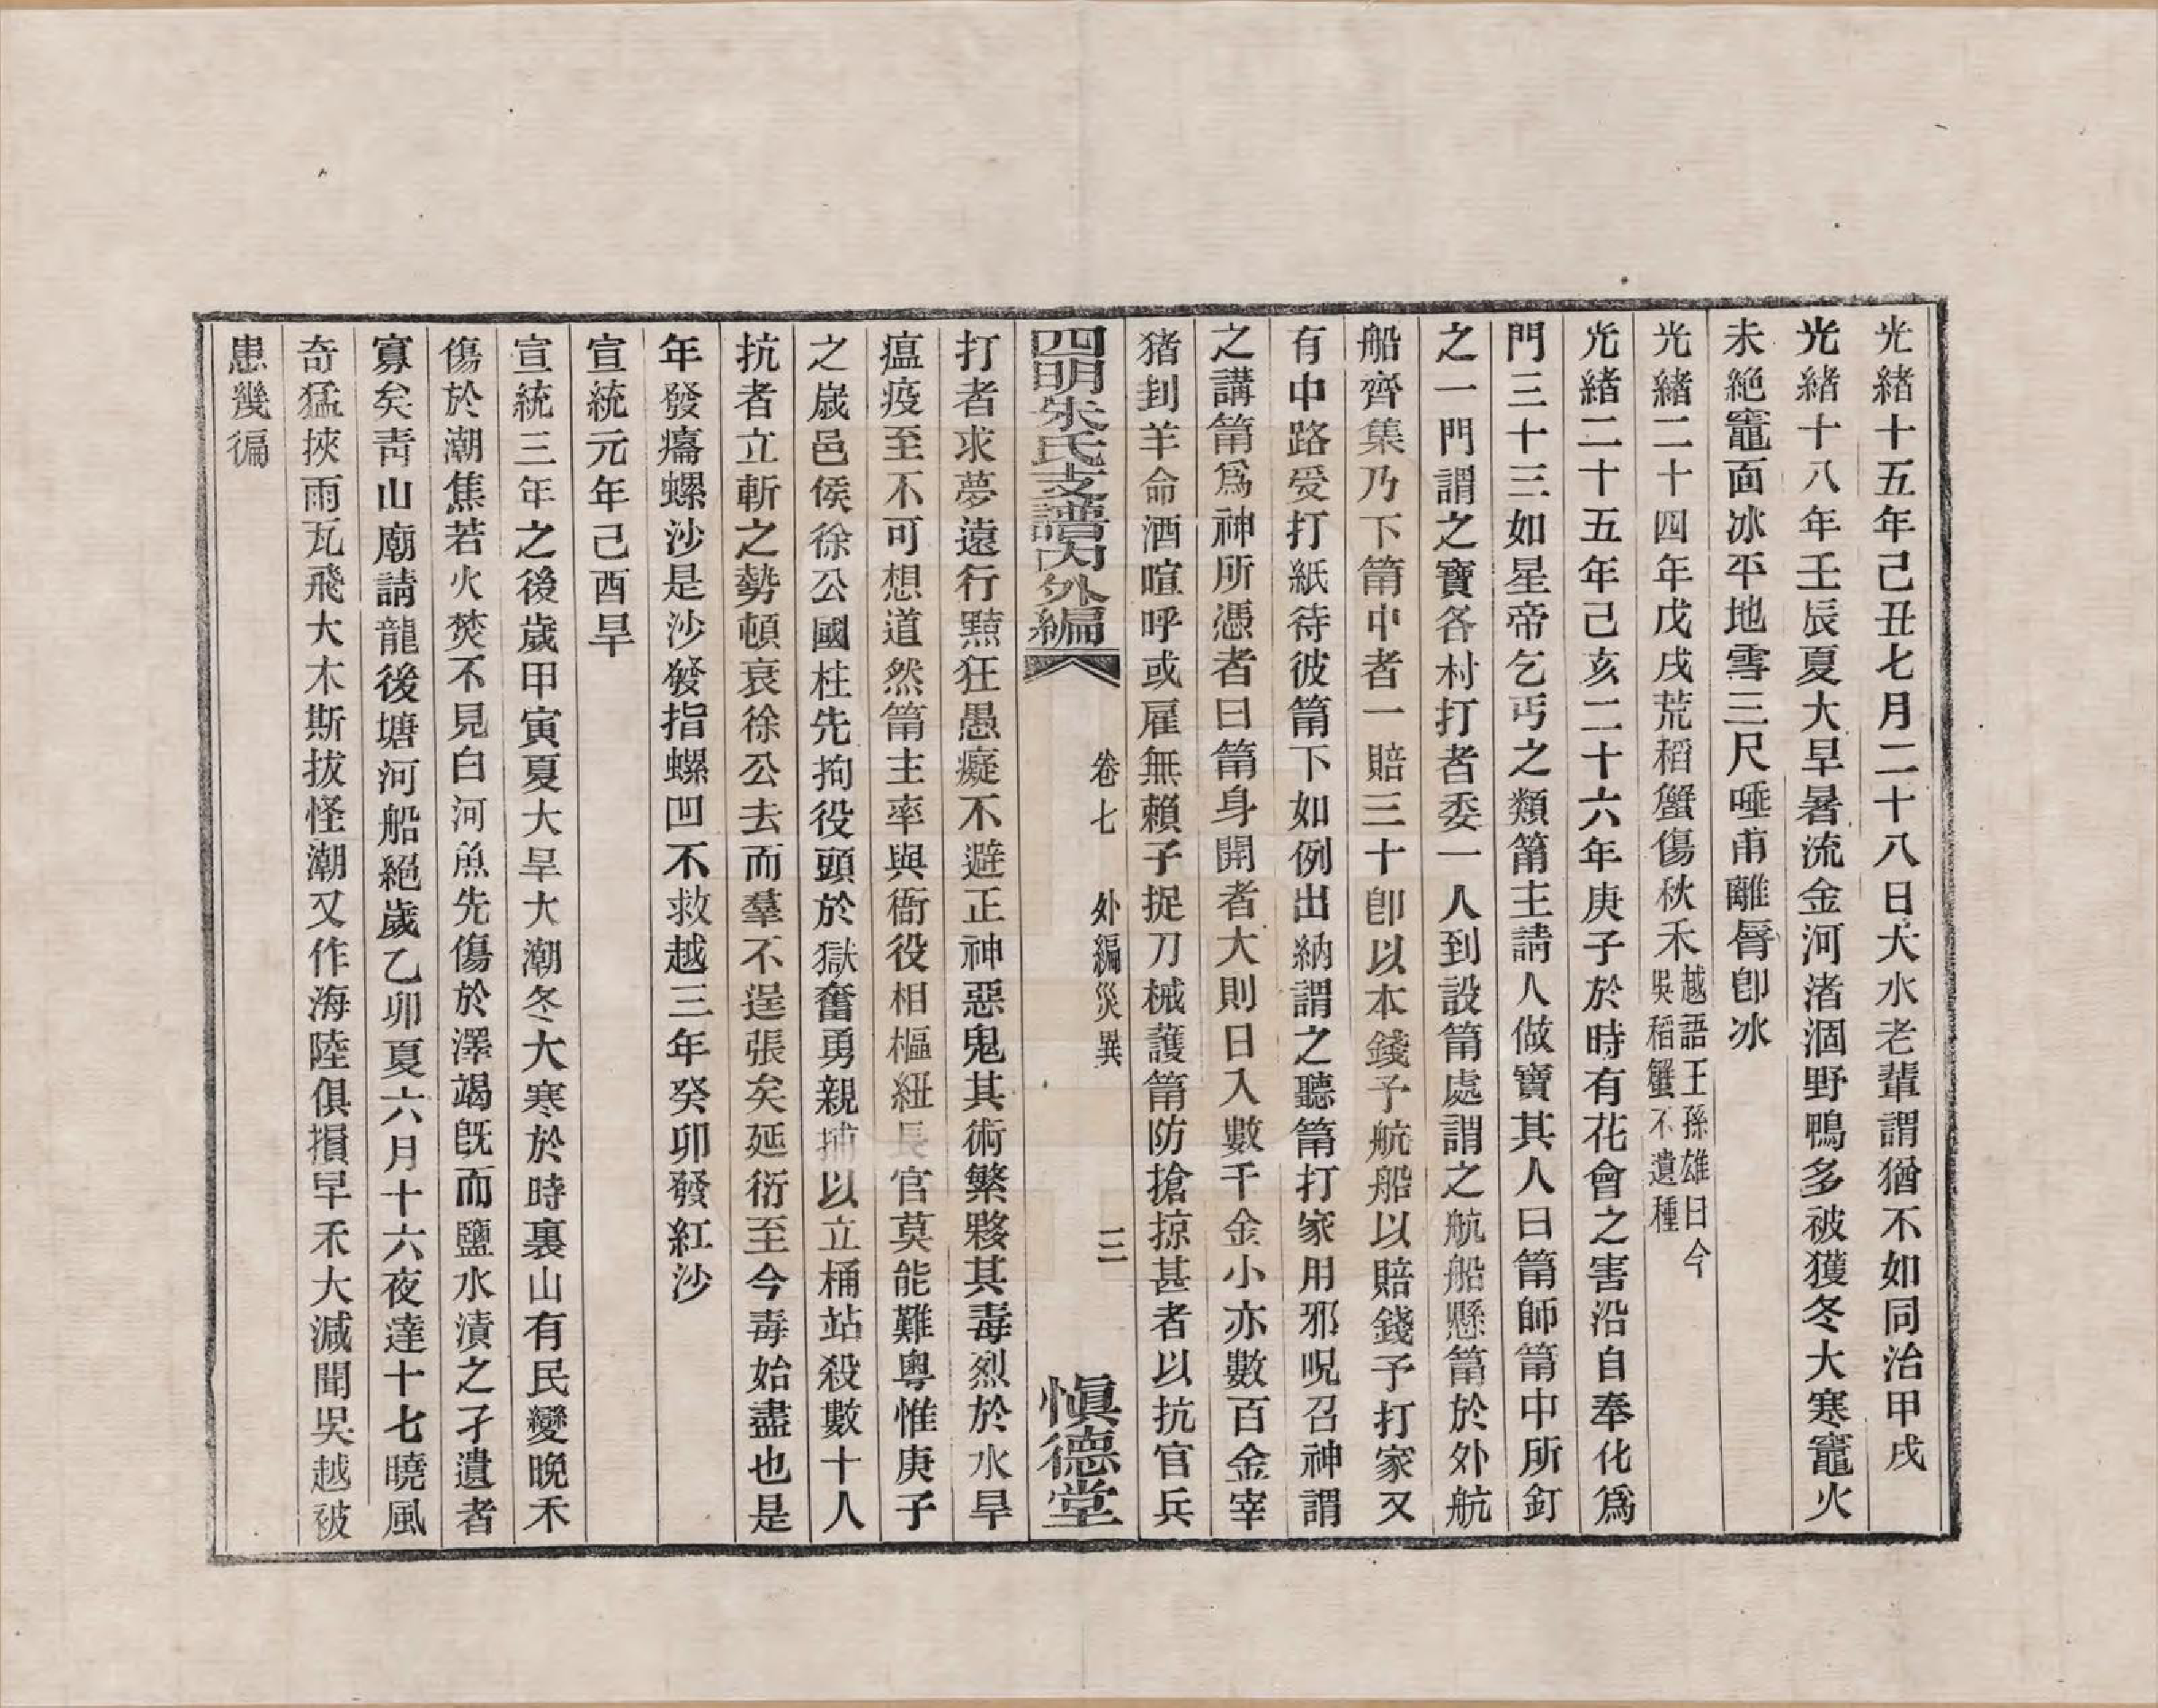 光緒十五年己丑七月二十八日大水老輩謂猶不如同治甲戌
光緒十八年壬辰夏大旱暑流金河渚涸野鴨多被獲冬大寒竈火
未絕竈面冰平地雪三尺唾甫離脣卽冰
光緒二十四年戊戌荒稻蟹傷秋禾越語王孫雄曰今吳稻蟹不遺種
光緒二十五年己亥二十六年庚子於時有花會之害沿自奉化爲
門三十三如星帝乞丐之類筩主請人做寶其人曰筩師筩中所釘
之一門謂之寶各村打者委一人到設筩處謂之航船懸筩於外航
船齊集乃下筩中者一賠三十卽以本錢予航船以賠錢予打家又
有中路受打紙待彼筩下如例出納謂之聽筩打家用邪呪召神謂
之講筩爲神所憑者曰筩身開者大則日入數千金小亦數百金宰
猪刲羊命酒喧呼或雇無賴子捉刀械護筩防搶掠甚者以抗官兵
四明朱氏支譜內外編 卷七 外編災異 三 愼德堂
打者求夢遠行黠狂愚癡不避正神惡鬼其術繁夥其毒烈於水旱
瘟疫至不可想道然筩主率與衙役相樞紐長官莫能難粵惟庚子
之歲邑侯徐公國柱先拘役頭於獄奮勇親捕以立桶站殺數十人
抗者立斬之勢頓衰徐公去而羣不逞張矣延衍至今毒始盡也是
年發癟螺沙是沙發指螺凹不救越三年癸卯發紅沙
宣統元年己酉旱
宣統三年之後歲甲寅夏大旱大潮冬大寒於時裏山有民變晚禾
傷於潮焦若火焚不見白河魚先傷於澤竭旣而鹽水漬之孑遺者
寡矣靑山廟請龍後塘河船絕歲乙卯夏六月十六夜達十七曉風
奇猛挾雨瓦飛大木斯拔怪潮又作海陸俱損早禾大減聞吳越被
患幾徧